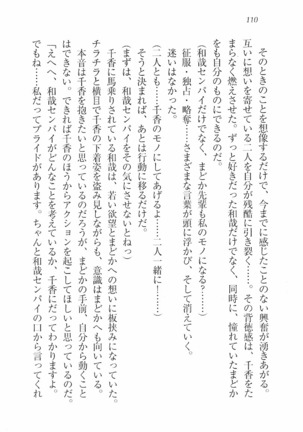 110
そのときのことを想像するだけで、今までに感じたことのない興奮が湧きあがる。
互いに恋情を寄せている二人を自分が残酷に引き裂く――その背徳感は、千香をた
まらなく燃えさせた。ずっと好きだった和哉だけでなく、同時に、憧れていたまどか
をも自分のものにできるのだ。
(和哉センパイだけでなく、まどか先輩も私のモノになる？……)
征服・独占・略奪……さまざまな言葉が頭に浮かび、そして消えていく。
迷いはなかった。
(二人とも……千香のモノにしてあげるよ……二人一緒に……)
そうと決まれば、あとは行動に移るだけだ。
(まずは、和哉センパイをその気にさせないとねっ)
千香に馬乗りされている和哉は、若い欲望とまどかへの想いに板挟みになっていた。
チラチラと横目で千香の下着姿を盗み見しながらも、意識はまどかへも向いている。
本音は千香を抱きたいと思っているのだろうが、まどかの手前、自分から動くこと
はできない。できれば千香のほうからアクションを起こしてほしいと思っているのだ。
「えへへ、和哉センパイがどんなことを考えているか、千香にだってわかりますよ。
でもね……私だってプライドがあります。ちゃんと和哉センパイの口から言ってくれ